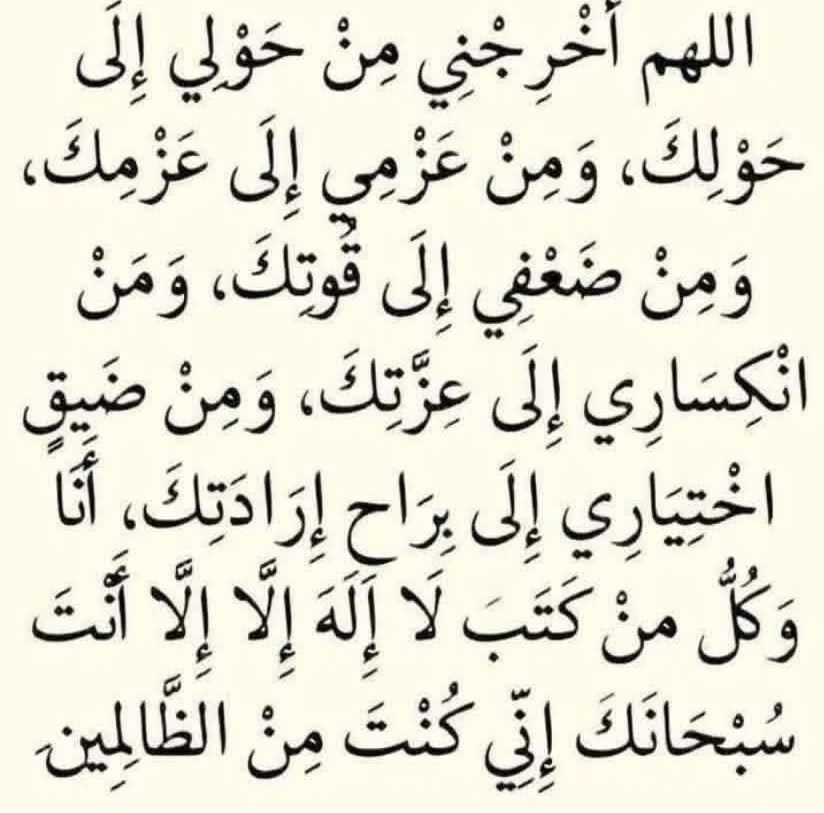 اللهم أَخْرِجْنِي مِنْ حَوْلِي إِلَى
حَوْلِكَ، وَمِنْ عَزْمِي إِلَى عَزْمِكَ،
وَمِنْ ضَعْفِي إِلَى قُوتِكَ، وَمَنْ
انْكِسَارِي إِلَى عِزَّتِكَ، وَمِنْ ضَيقٍ
اخْتِيَارِي إِلَى بِرَاح إِرَادَتِكَ، أَنَا
وَكُلُّ منْ كَتَبَ لَا إِلَهَ إِلَّا إِلَّا أَنْتَ
سُبْحَانَكَ إِنِّي كُنْتَ مِنْ الظَّالِمِينَ